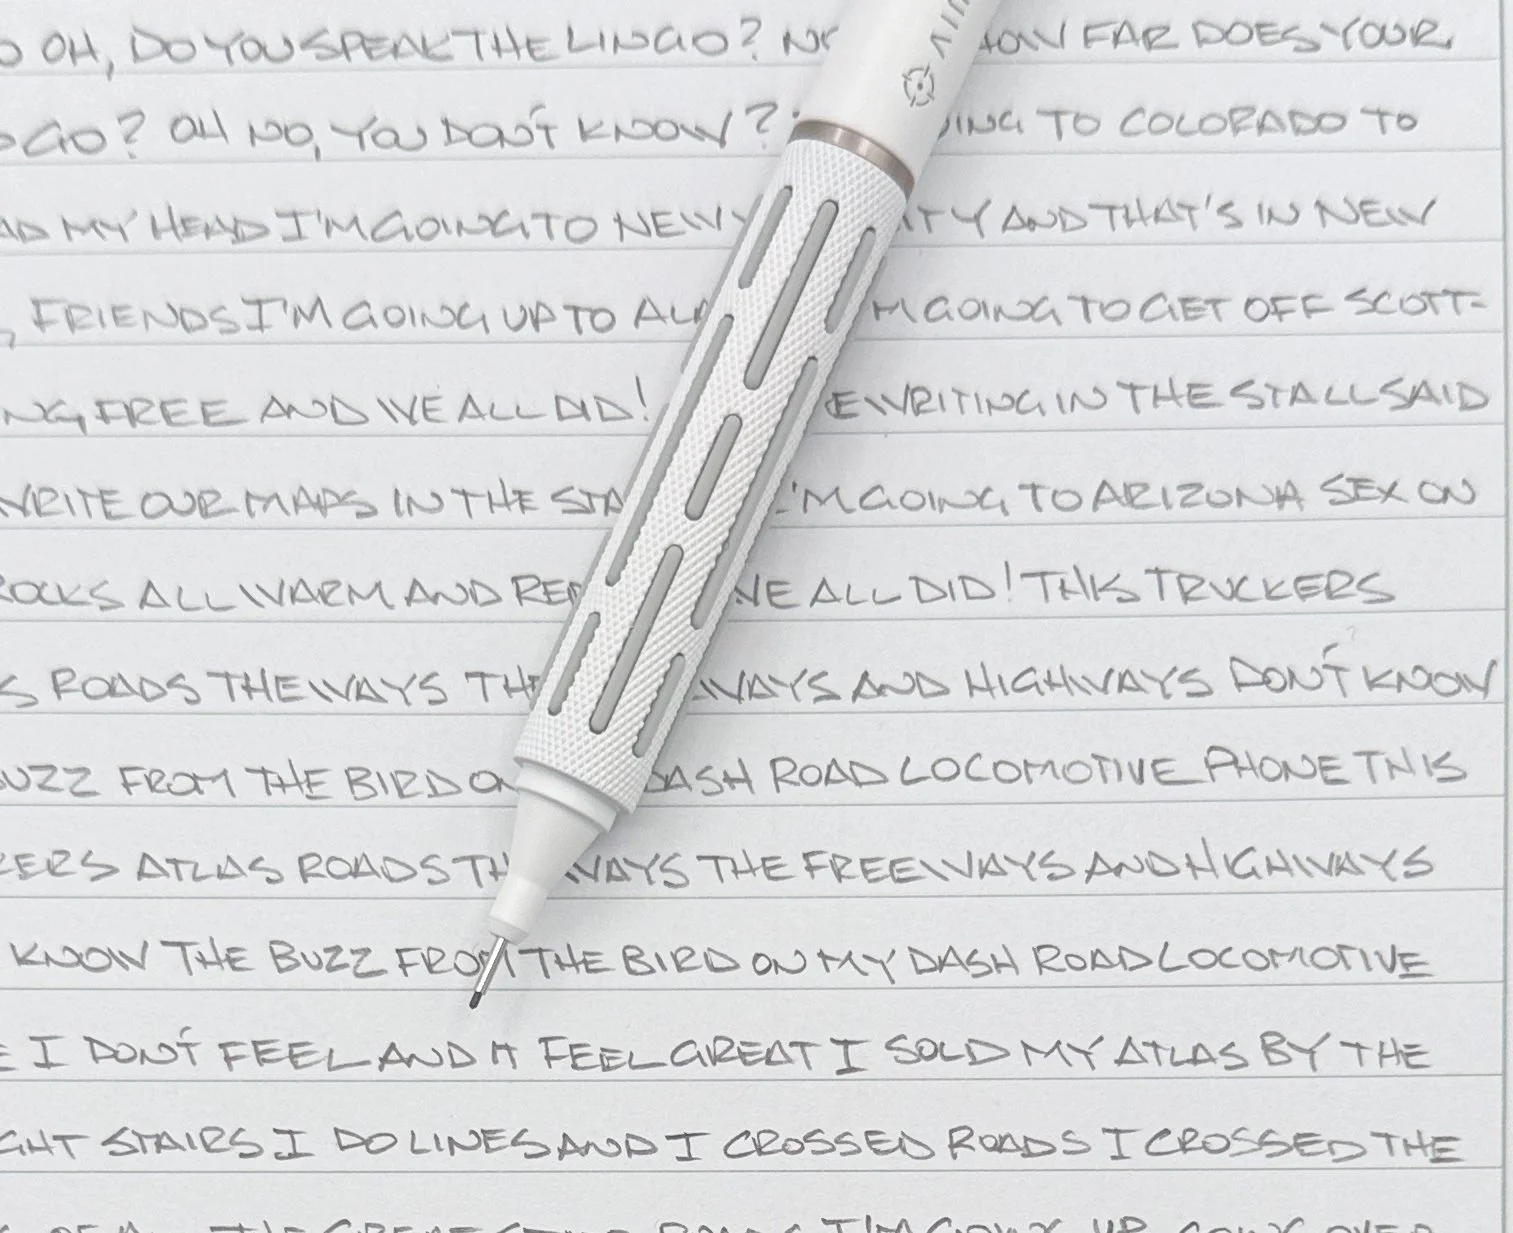 OH, DO YOU SPEAK THE LINGO? NO HOW FAR DOES YOUR
GO? OH NO, YOU DON'T KNOW? GOING TO COLORADO TO
MY HEAD I'M GOING TO NEW CITY AND THAT'S IN NEW
, FRIENDS I'M GOING UP TO I'M GOING TO GET OFF SCOTT-
FREE AND WE ALL DID! THE WRITING IN THE STALL SAID
WRITE OUR MAPS IN THE I'M GOING TO ARIZONA SEX ON
ROCKS ALL WARM AND RED WE ALL DID! THIS TRUCKERS
ROADS THE WAYS THE WAYS AND HIGHWAYS DON'T KNOW
BUZZ FROM THE BIRD ON DASH ROAD LOCOMOTIVE PHONE THIS
ATLAS ROADS THE WAYS THE FREEWAYS AND HIGHWAYS
KNOW THE BUZZ FROM THE BIRD ON MY DASH ROAD LOCOMOTIVE
I DON'T FEEL AND IT FEEL GREAT I SOLD MY ATLAS BY THE
STAIRS I DO LINES AND I CROSSED ROADS I CROSSED THE